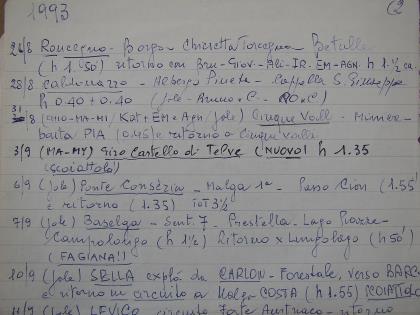 1993 2
26/8 Roncegno - Borgo - Chiesetta Torcegno
(h 1.50) ritorno con Bru - Giov - Ali - IR. EM - AGN. h 1.½ ca.
28/8 - Albergo Pineta - Cappella S. Giuseppe
h 0.40 + 0.40 (Jole -
31/8 Kat + EM e Agn / Jole) Cinque Valli -
baita PIA (0.45) e ritorno a Cinque Valli
3/9 (MA-MY) Giro Castello di Telve (NUOVO) h 1.35
(SCOIATTOLO)
6/9 (Jole) Ponte Conséria - Malga 1ª - Passo Cion (1.55)
e ritorno (1.35) TOT 3½
7/9 (Jole) Baselga - Sent. 7 - Prestella - Lago Piazze -
Campolongo (h 1½) Ritorno x Lungolago (h 50')
(FAGIANI!)
10/9 (Jole) SELLA da CARLON - Forestale, verso BARC
e ritorno in circuito a Malga COSTA (h 1.55)
11/9 (Jole) LEVICO circuito Forte Austriaco - ritorno